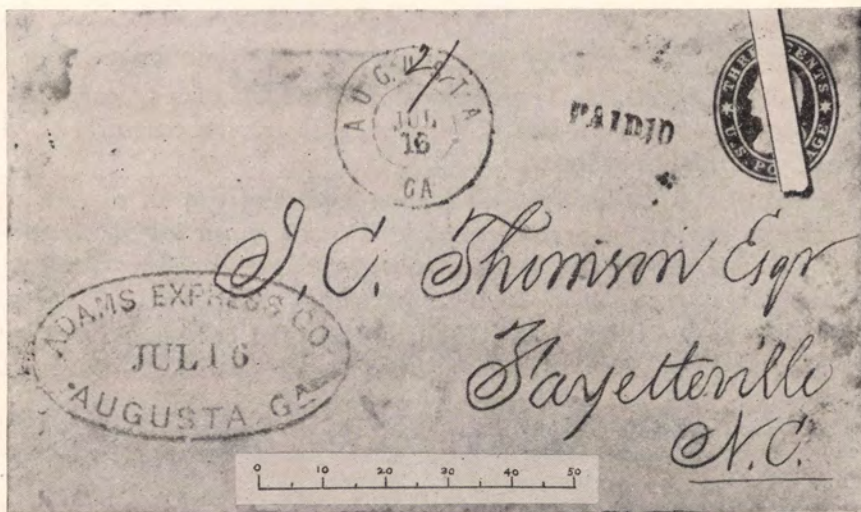 AUGUSTA
JUL
16
GA
2
PAID 10
THREE CENTS
U.S. POSTAGE
J. C. Thomson Esqr
Fayetteville
N.C.
ADAMS EXPRESS CO
JUL 16
AUGUSTA GA
0 10 20 30 40 50